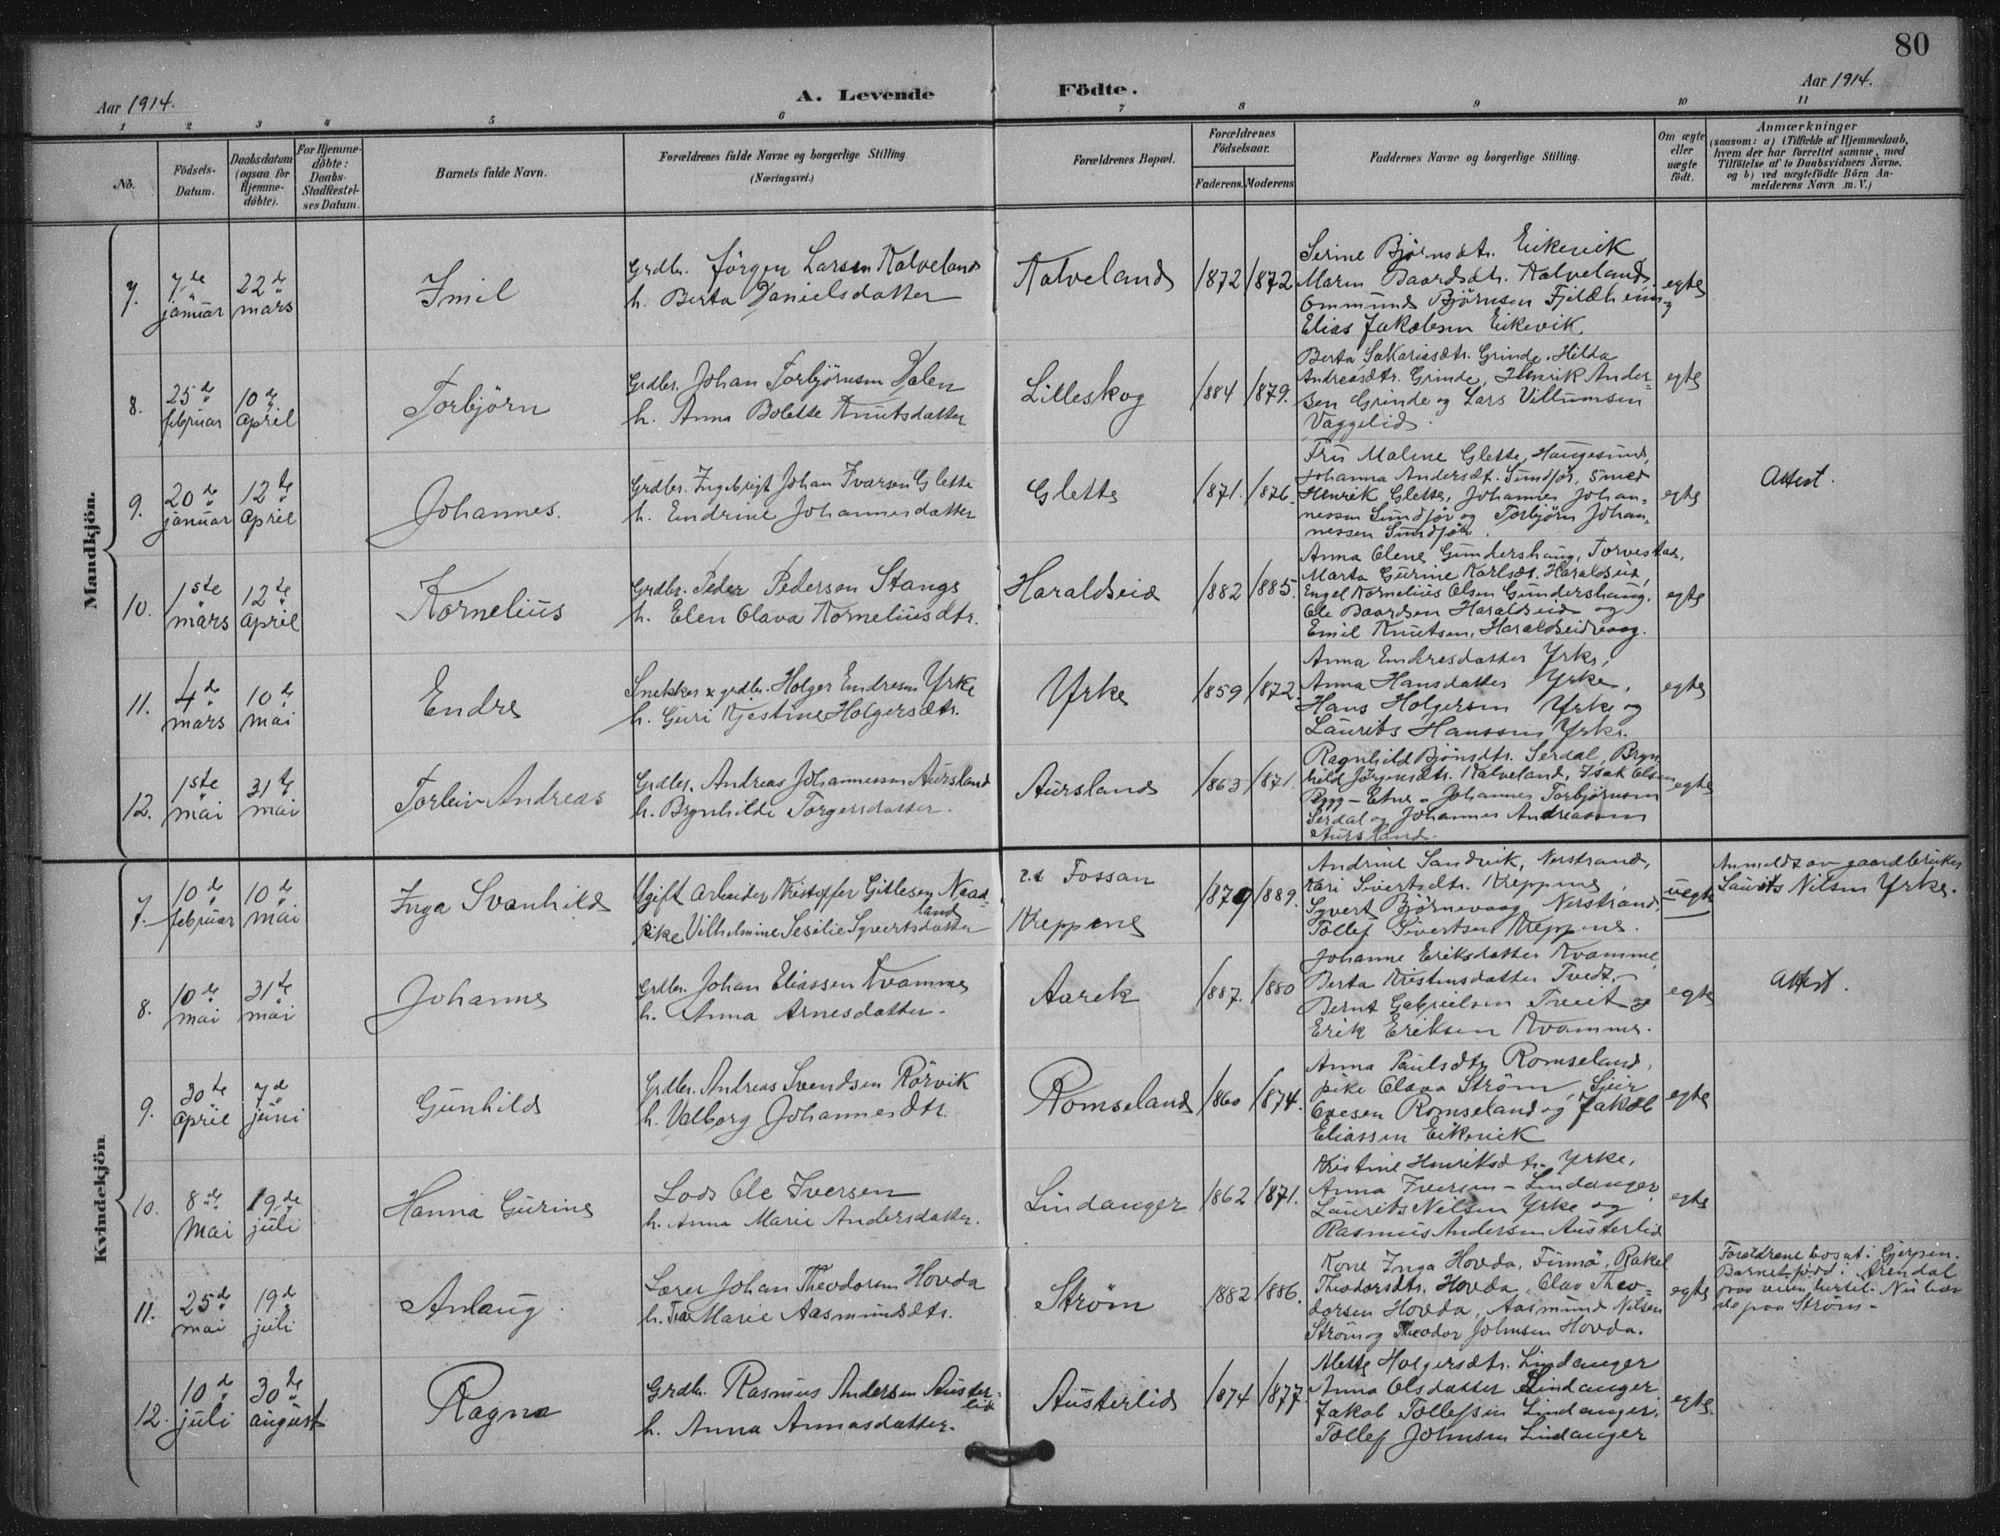 80
Aar 1914.
A. Levende Födte.
Aar 1914.
1 2 3 4 5 6 7 8 9 10 11
No.
Födsels-Datum.
Daabsdatum (ogsaa for Hjemme-döbte).
For Hjemme-döbte: Daabs-Stadfæstel-ses Datum.
Barnets fulde Navn.
Forældrenes fulde Navne og borgerlige Stilling
(Næringsvei.)
Forældrenes Bopæl.
Forældrenes Födselsaar.
Faderens. Moderens.
Faddernes Navne og borgerlige Stilling.
Om ægte eller uægte födt.
Anmærkninger
(saasom: a) i Tilfælde af Hjemmedaab,
hvem der har forrettet samme, med
Tilföielse af to Daabsvidners Navne.
og b) ved uægtefödte Börn An-
melderens Navn m. V.)
Mandkjön.
7. 7de januar 22de mars Imil
Grdbr. Jörgen Larsen Kalveland
h. Berta Danielsdatter
Kalveland 1872 1872
Serine Bjørnsdtr. Eikevik
Maren Baardsdtr. Kalveland,
Ommund Bjørnsen Fjeldheim og
Elias Jakobsen Eikevik.
egte
8. 25de februar 10de april Torbjörn
Grdbr. Johan Torbjørnsen Dalen
h. Anna Bolette Knutsdatter
Lilleskog 1884 1879.
Berta Sakariasdtr. Grinde, Hilda
Andreasdtr. Grinde, Henrik Ander-
sen Grinde og Lars Villumsen
Vaggelid.
egte
9. 20de januar 12te april Johannes.
Grdbr. Ingebrigt Johan Ivarsen Glette
h. Endrine Johannesdatter
Glette 1871. 1876.
Fru Maline Glette, Haugesund,
Johanna Andersdt. Sundfør, smed
Henrik Glette, Johannes Johan-
nessen Sundfør og Torbjörn Johan-
nessen Sundfør.
egte
Attest.
10. 1ste mars 12te april Kornelius
Grdbr. Peder Pederson Stange
h. Elen Olava Korneliusdtr.
Haraldseid 1882 1885.
Anna Olene Gundershaug, Torvestad,
Marta Gurine Karlsdt. Haraldseid,
Engel Kornelius Olsen Gundershaug,
Ole Baardsen Haraldseid og
Emil Knutsen, Haraldseidvaag.
egte
11. 4de mars 10de mai Endre
Snekker & grdbr. Holger Endresen Yrke
h. Guri Kjestine Holgersdtr.
Yrke 1859 1872.
Anna Endresdatter Yrke,
Anna Hansdatter Yrke,
Hans Holgersen Yrke og
Laurits Hanssen Yrke.
egte
12. 1ste mai 31te mai Torleiv Andreas
Grdbr. Andreas Johannessen Aursland
h. Brynhilde Torgersdatter.
Aursland 1863 1871.
Ragnhild Bjönsdtr. Serdal, Bryn-
hild Jørgensdtr. Kalveland, Isak Olsen
Rygg - Etne - Johannes Torbjørnsen
Serdal og Johannes Andreasen
Aursland.
egte
Kvindekjön.
7. 10de februar 10de mai Inga Svanhild
Ugift arbeider Kristoffer Gitlesen Naad-
land
Pike Vilhelmine Sesilie Syvertsdatter
Fossan
Kreppene
1879 1889.
Andrine Sandvik, Nerstrand,
Kari Sivertsdtr. Kreppene,
Syvert Bjørnevaag Nerstrand,
Tollef Sivertsen Kreppene.
uegte
Anmeldt av gaardbruker
Laurits Nilsen Yrke.
8. 10de mai 31te mai Johanne
Grdbr. Johan Eliassen Kvamme
h. Anna Arnesdatter.
Aarek 1887. 1880
Johanne Eriksdatter Kvamme,
Berta Kristensdatter Tvedt,
Bernt Gabrielsen Tveit og
Erik Eriksen Kvamme.
egte
Attest.
9. 30te april 7de juni Gunhild
Grdbr. Andreas Svendsen Rörvik
h. Valborg Johannesdtr.
Romseland 1860 1874.
Anna Paulsdtr. Romseland,
pike Olava Strøm, Sjur
Ovesen Romseland og Jakob
Eliassen Eikevik
egte
10. 8de mai 19de juli Hanna Gurine
Lods Ole Iversen
h. Anna Marie Andersdatter.
Lindanger 1862 1871.
Kristine Henriksdt. Yrke,
Anna Iversen - Lindanger,
Laurits Nilsen Yrke og
Rasmus Andersen Austerlid
egte
11. 25de mai 19de juli Anlaug
Lærer Johan Theodorsen Hovda
h. Tea Marie Aasmundsdtr.
Strøm 1882 1886.
Kone Inga Hovda, Finnö, Rakel
Theodorsdtr. Hovda, Olav Theo-
dorsen Hovda, Aasmund Nilsen
Strøm og Theodor Johnsen Hovda.
egte
Forældrene bosat i Gjerpen.
Barnet född i Arendal
paa veien hertil. Nu
paa Strøm -
12. 10de juli 30de august Ragna
Grdbr. Rasmus Andersen Auster-
lid
h. Anna Annasdatter.
Austerlid 1874 1877.
Mette Holgersdtr. Lindanger
Anna Olsdatter Lindanger
Jakob Tollefsen Lindanger,
Tollef Johnsen Lindanger
egte.